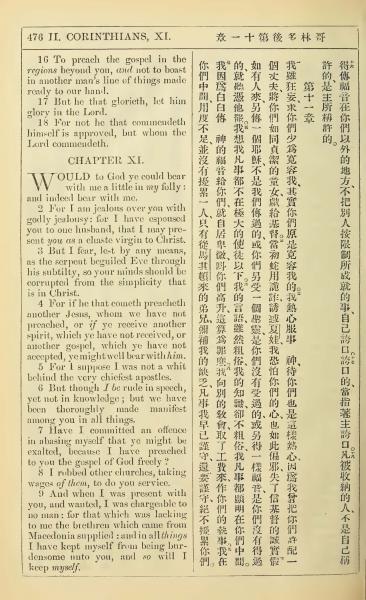 476 II. CORINTHIANS, XI.
章一十第後多林哥
16 To preach the gospel in the
regions beyond you, and not to boast
in another man's line of things made
ready to our hand.
17 But he that glorieth, let him
glory in the Lord.
18 For not he that commendeth
himself is approved, but whom the
Lord commendeth.
CHAPTER XI.
WOULD to God ye could bear
with me a little in my folly:
and indeed bear with me.
2 For I am jealous over you with
godly jealousy: for I have espoused
you to one husband, that I may pre-
sent you as a chaste virgin to Christ.
3 But I fear, lest by any means,
as the serpent beguiled Eve through
his subtilty, so your minds should be
corrupted from the simplicity that
is in Christ.
4 For if he that cometh preacheth
another Jesus, whom we have not
preached, or if ye receive another
spirit, which ye have not received, or
another gospel, which ye have not
accepted, ye might well bear with him.
5 For I suppose I was not a whit
behind the very chiefest apostles.
6 But though I be rude in speech,
yet not in knowledge; but we have
been thoroughly made manifest
among you in all things.
7 Have I committed an offence
in abasing myself that ye might be
exalted, because I have preached
to you the gospel of God freely?
8 I robbed other churches, taking
wages of them, to do you service.
9 And when I was present with
you, and wanted, I was chargeable to
no man: for that which was lacking
to me the brethren which came from
Macedonia supplied: and in all things
I have kept myself from being bur-
densome unto you, and so will I
keep myself.
得傳福音在你們以外的地方、不把別人按限制所成就的事、自己誇口。誇口的、當指著主誇口。凡被收納的人、不是自己稱
許的、是主所稱許的。
第十一章
我雖狂妄、求你們少爲寬容我、其實你們原是寬容我的。我熱心服事　神、待你們也是這樣熱心、因爲我曾把你們許配一
個丈夫、將你們如同貞潔的童女、獻給基督。當初蛇用詭詐誘惑夏娃、我恐怕你們的心、也如此偏邪、失了信基督的誠實。假
如有人來、另傳一個耶穌、不是我們傳過的、或你們另受一個聖靈、是你們沒有受過的、或另得一樣福音、是你們沒有得過
的、就聽憑他罷。我想我凡事都不在極大的使徒以下。我的言語雖然粗俗、我的知識、卻不粗俗、我凡事都顯明在你們中間。
我因爲白白傳　神的福音給你們、就自居卑微、叫你們高升、這算爲罪麽。我向別的敎會、取了工費來、作你們的執事。我在
你們中間用度不足、並沒有擾累一人、只有從馬其頓來的弟兄、彌補我的缺乏、凡事我早已謹守、還要謹守、絕不擾累你們。